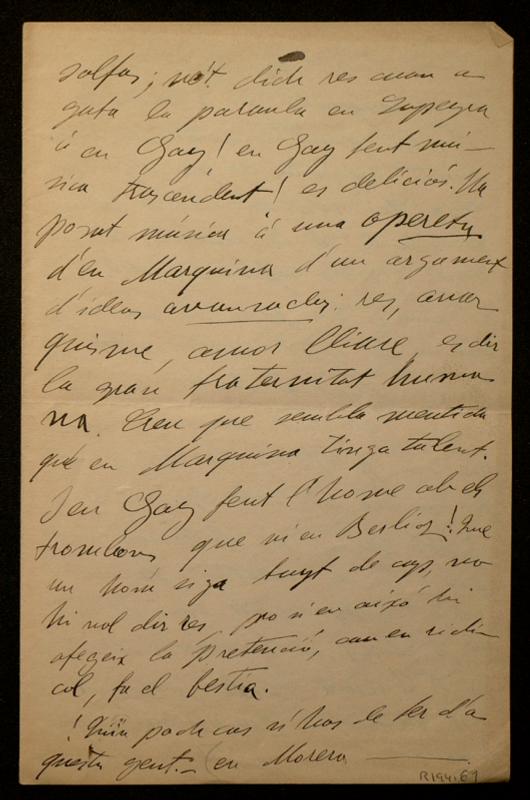 solfas; no't dich res quan a
gafa la paraula en
á en Gay! en Gay fent mú-
sica trascendent! es deliciós. Ha
posat música á una opereta
d'en Marquina d'un argument
d'ideas avansades: res, anar
quisme, amor lliure es dir
la gran fraternitat huma
na. Creu que sembla mentida
que en Marquina tinga talent.
I en Gay fent l'home ab els
trombons que ni en Berlioz! Que
un hom siga buyt de cap, no
hi vol dir res, pro si en aixó hi
afegeix la pretenció, cau en ridi-
col, fa el bestia.
! Quin pa de cas s'ha de fer d'a
questa gent. – (en Morera
R.194.69